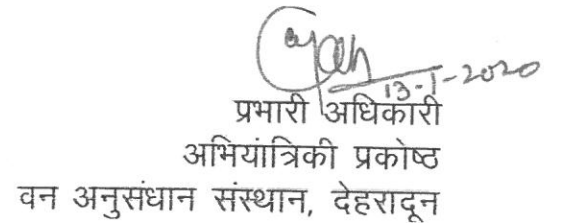 13-1-2020
प्रभारी अधिकारी
अभियांत्रिकी प्रकोष्ठ
वन अनुसंधान संस्थान, देहरादून